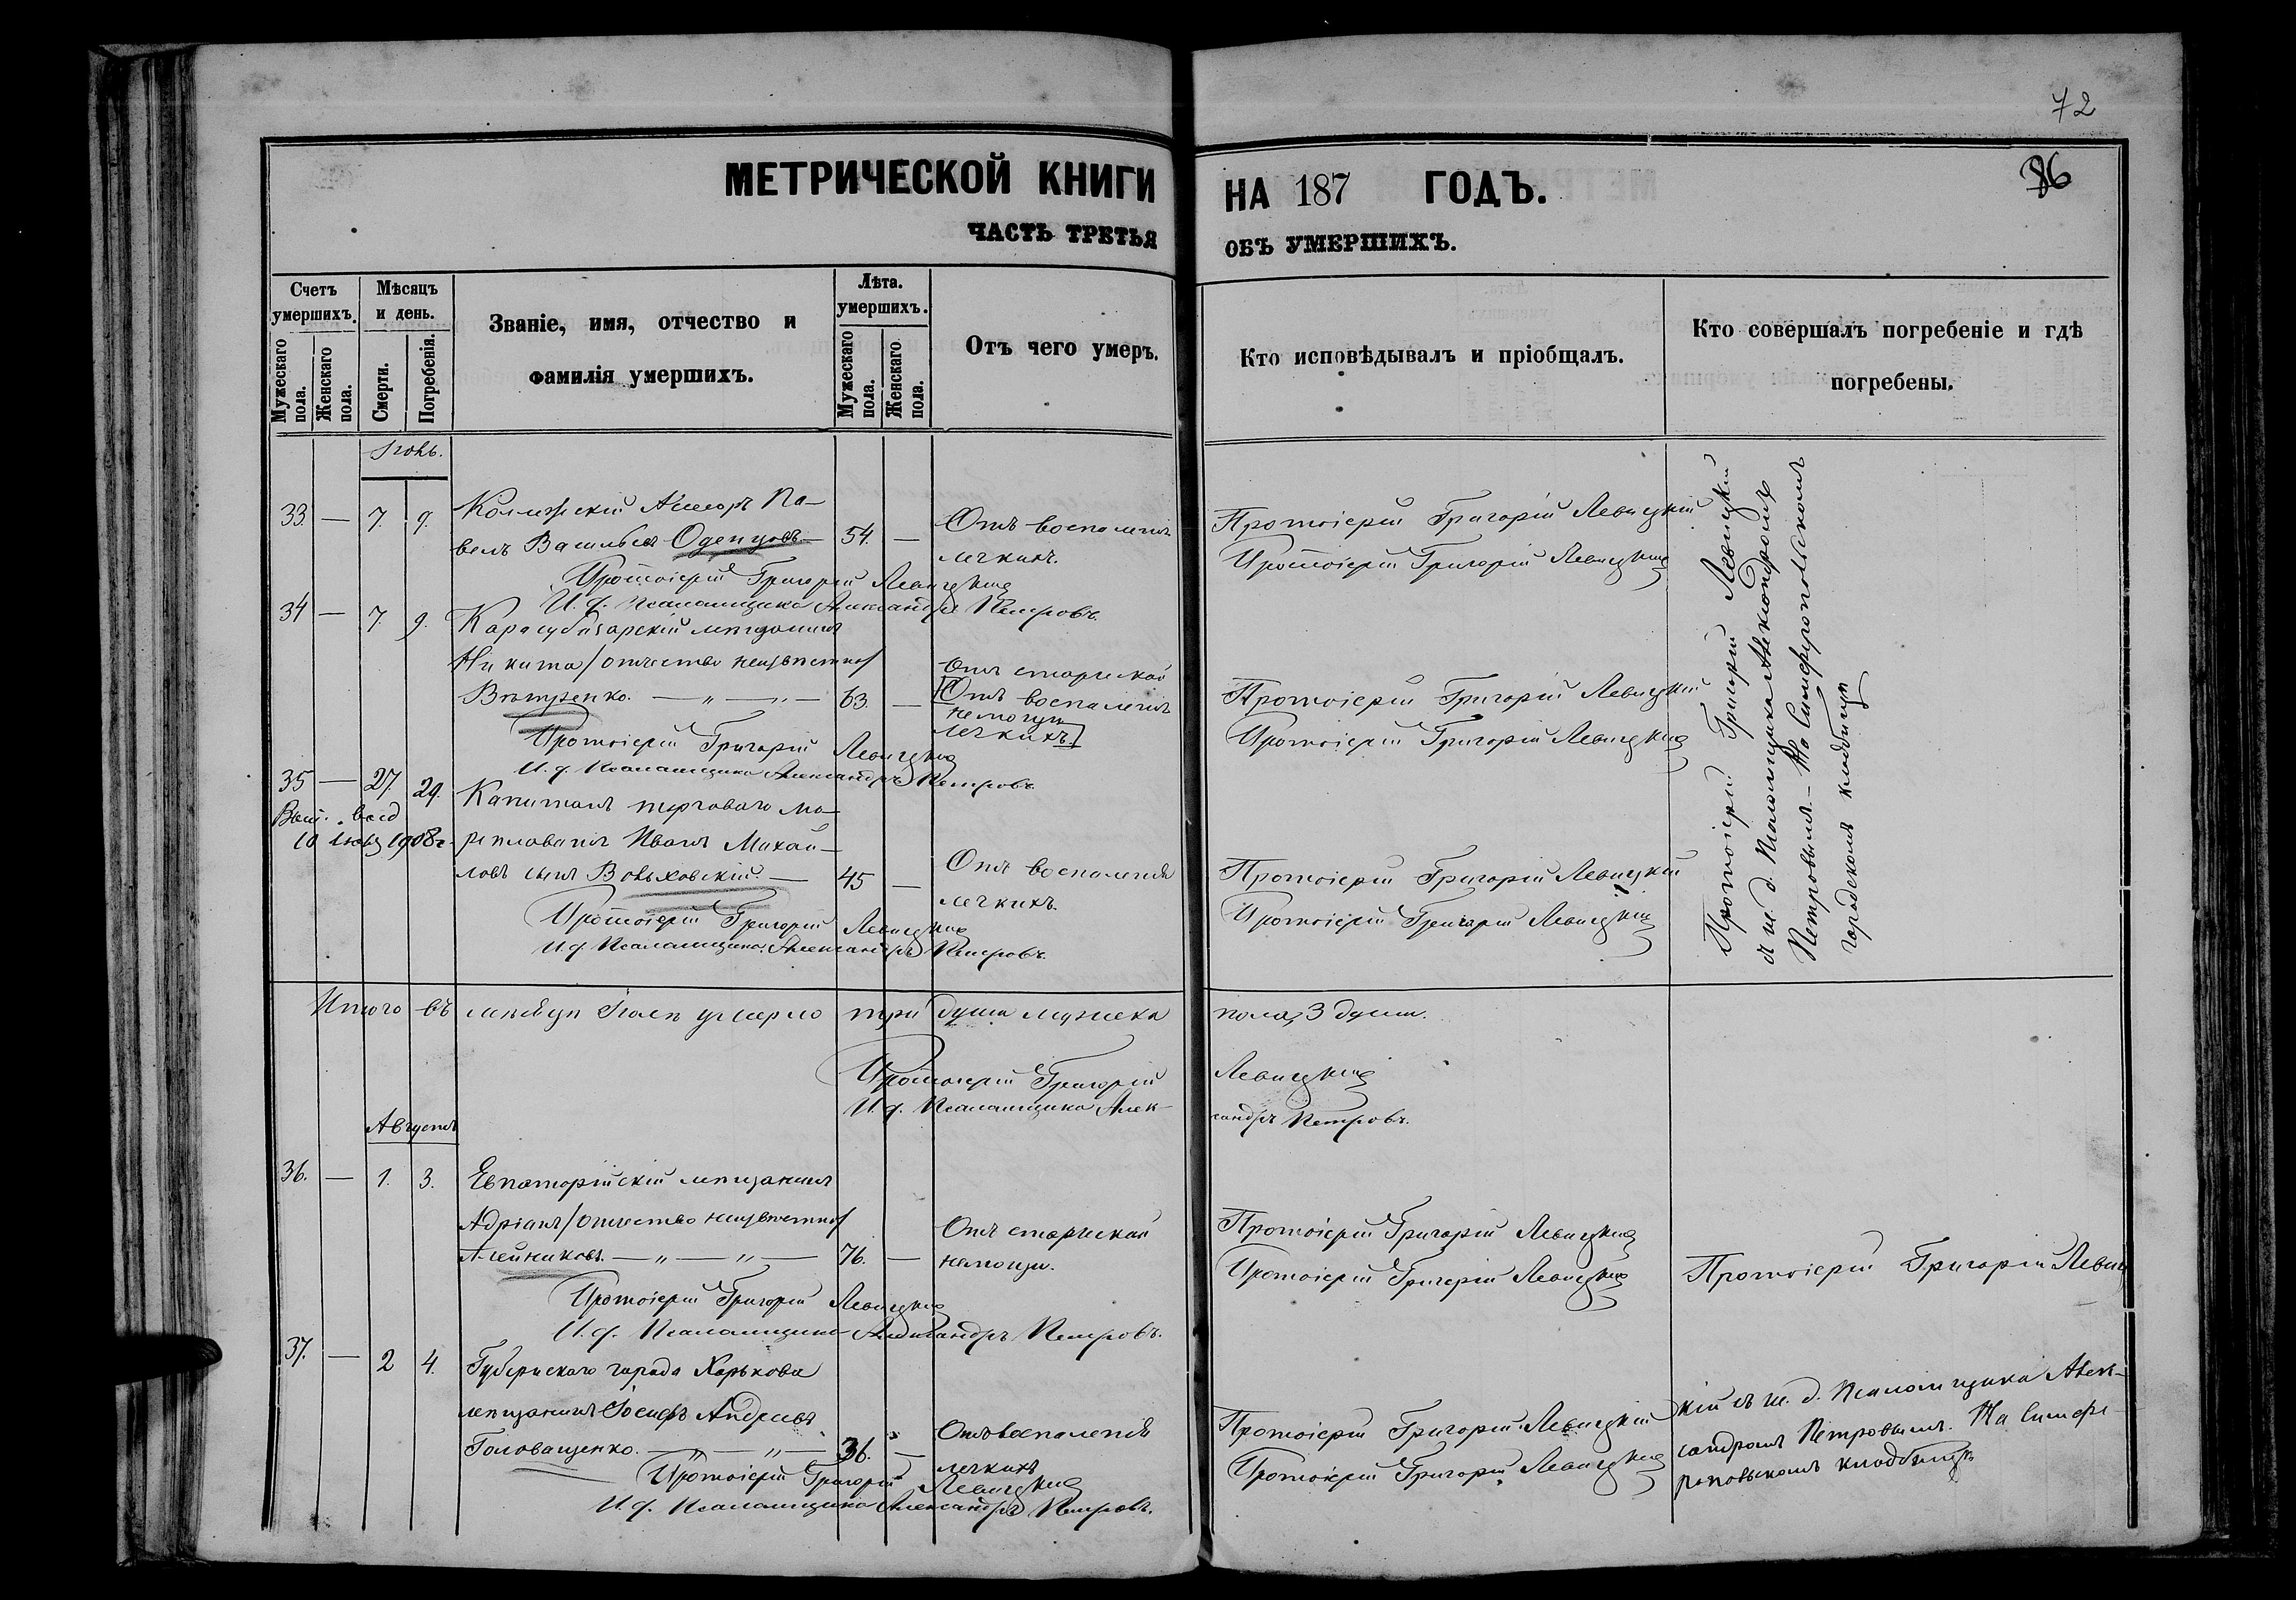 72
86
МЕТРИЧЕСКОЙ КНИГИ НА 187 ГОДЪ.
ЧАСТЬ ТРЕТЬЯ ОБЪ УМЕРШИХЪ.
Счетъ умершихъ.
Мужескаго пола.
Женскаго пола.
Мѣсяцъ и день.
Смерти.
Погребенія.
Званіе, имя, отчество и
фамилія умершихъ.
Лѣта. умершихъ.
Мужескаго пола.
Женскаго пола.
Отъ чего умеръ.
Кто исповѣдывалъ и пріобщалъ.
Кто совершалъ погребеніе и гдѣ
погребены.
33. — 7. 9. Коллежскій Асессоръ Па-
велъ Васильевъ Оденцовъ — 54. — Отъ воспаленія
легкихъ.
Протоіерей Григорій Левицкій
Протоіерей Григорій Левицкій
Протоіерей Григорій Левицкій
И. д. Псаломщика Александръ Петровъ.
34 — 7. 9. Карасубазарскій мѣщанинъ
Никита /отчество неизвѣстно/
Вѣтренко. — „ — „ — 63. — Отъ старческой
[Отъ воспаленія
немощи
легкихъ]
Протоіерей Григорій Левицкій
Протоіерей Григорій Левицкій
Протоіерей Григорій Левицкій
И. д. Псаломщика Александръ Петровъ
35 — 27. 29. Капитанъ торговаго мо-
10 1908 г. реплаванія Иванъ Михай-
ловъ сынъ Вовьховскій. — 45 — Отъ воспаленія
легкихъ.
Протоіерей Григорій Левицкій
Протоіерей Григорій Левицкій
Протоіерей Григорій Левицкій
И. д. Псаломщика Александръ Петровъ.
Протоіерей Григорій Левицкій
съ и. д. Псаломщика Александромъ
Петровымъ. — На Симферопольскомъ
городскомъ кладбищѣ
Итого въ мѣсяцѣ Іюлѣ умерло три души мужска пола, 3 души.
Протоіерей Григорій Левицкій
И. д. Псаломщика Александръ Петровъ.
Августъ
36. — 1. 3. Евпаторійскій мѣщанинъ
Адріанъ /отчество неизвѣстно/
Алейниковъ. — „ — „ — 76. — Отъ старческой
немощи.
Протоіерей Григорій Левицкій
Протоіерей Григорій Левицкій
Протоіерей Григорій Левиц
Протоіерей Григорій Левицкій
И. д. Псаломщика Александръ Петровъ.
37. — 2 4. Губернскаго города Харькова
мѣщанинъ Іосифъ Андреевъ
Головащенко. — „ — „ — 36. — Отъ воспаленія
легкихъ
Протоіерей Григорій Левицкій
Протоіерей Григорій Левицкій
кій съ и. д. Псаломщика Алек-
сандромъ Петровымъ. На Симфе-
ропольскомъ кладбищѣ
Протоіерей Григорій Левицкій
И. д. Псаломщика Александръ Петровъ.